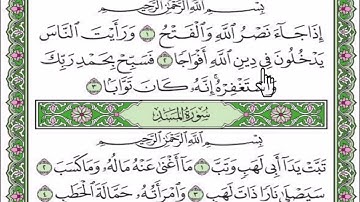 بِسْمِ اللَّهِ الرَّحْمَٰنِ الرَّحِيمِ
إِذَا جَاءَ نَصْرُ اللَّهِ وَالْفَتْحُ ١ وَرَأَيْتَ النَّاسَ
يَدْخُلُونَ فِي دِينِ اللَّهِ أَفْوَاجًا ٢ فَسَبِّحْ بِحَمْدِ رَبِّكَ
وَاسْتَغْفِرْهُ إِنَّهُ كَانَ تَوَّابًا ٣
سُورَةُ الْمَسَدِ
بِسْمِ اللَّهِ الرَّحْمَٰنِ الرَّحِيمِ
تَبَّتْ يَدَا أَبِي لَهَبٍ وَتَبَّ ١ مَا أَغْنَىٰ عَنْهُ مَالُهُ وَمَا كَسَبَ ٢
سَيَصْلَىٰ نَارًا ذَاتَ لَهَبٍ ٣ وَامْرَأَتُهُ حَمَّالَةَ الْحَطَبِ ٤